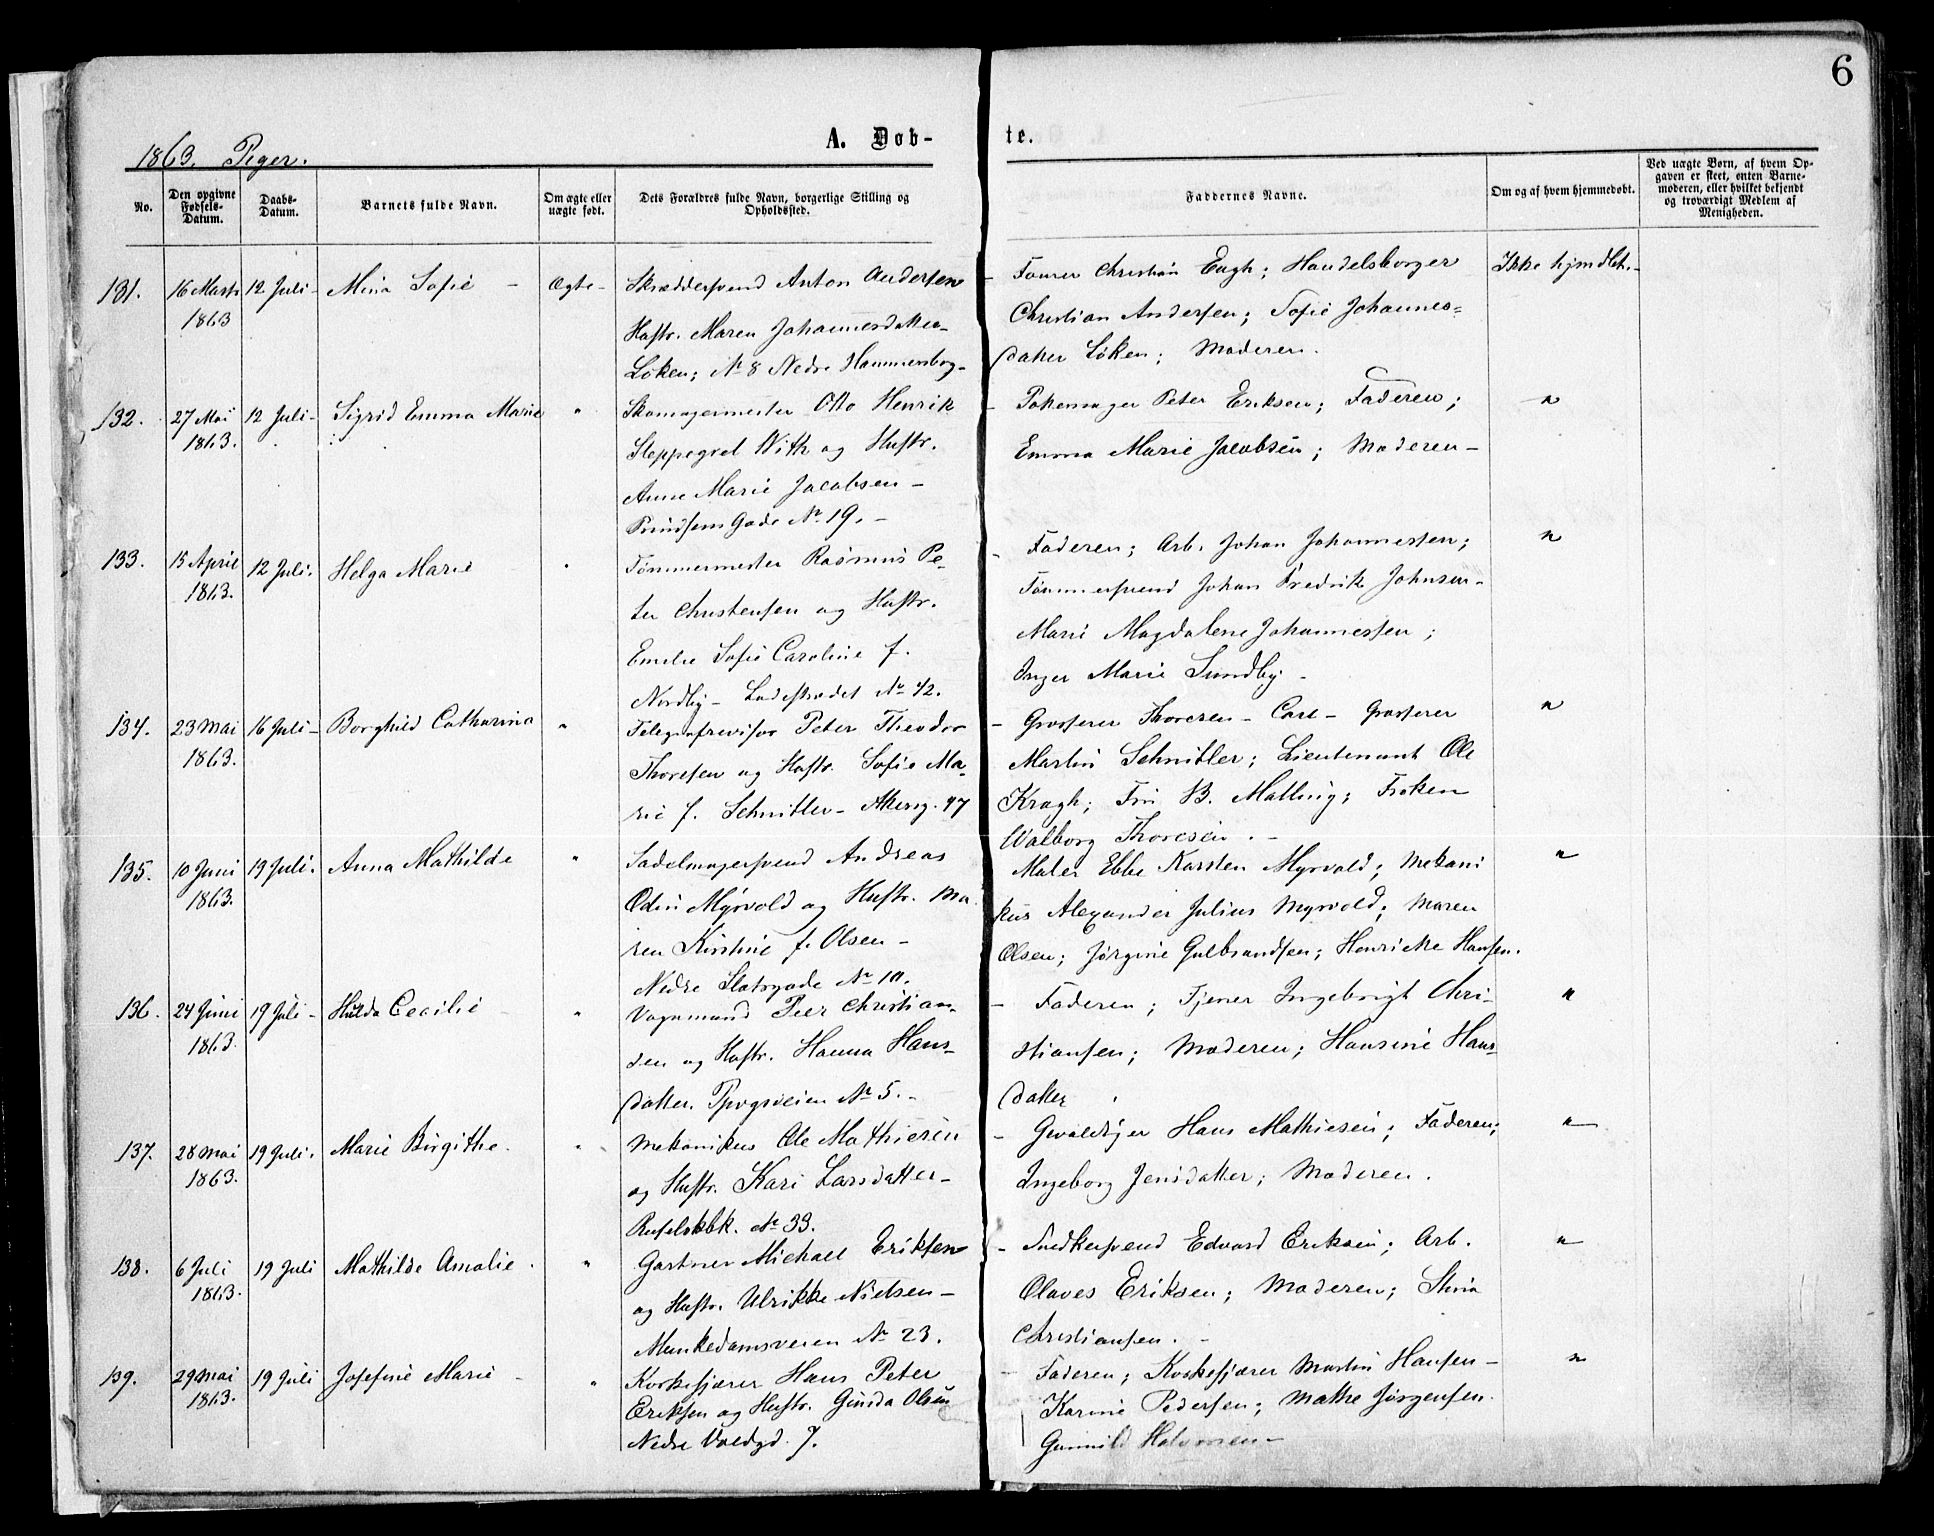 6
A. Døb-
te.
1863. Piger.
No.
Den opgivne Fødsels-Datum.
Daabs-Datum.
Barnets fulde Navn.
Om ægte eller uægte født.
Dets Forældres fulde Navn, borgerlige Stilling og Opholdssted.
Faddernes Navne.
Om og af hvem hjemmedøbt.
Ved uægte Børn, af hvem Opgaven er skeet, enten Barnemoderen, eller hvilket bekjendt og troværdigt Medlem af Menigheden.
131. 16 Marts 12 Juli- Mina Sofie - Ægte- Skrædersvend Anton Andersen
1863 Hustr. Maren Johannesdatter
Løken; No 8 Nedre Hammersborg-
- Christian Engh; Handelsborger Ikke hjmdbt.
Christian Andersen; Sofie Johannes-
datter Løken; Moderen.
132. 27 Mai 12 Juli- Sigrid Emma Marie " Skomagermester Otto Henrik
1863. Steppegrel With og Hustr.
Anne Marie Jacobsen -
Prindsens Gade No 19. -
- Peter Eriksen; Faderen; "
Emma Marie Jacobsen; Moderen -
133. 15 April 12 Juli. Helga Marie " Tømmermester Rasmus Pe-
1863. ter Christensen og Hustr.
Emelie Sofie Caroline f.
Nordby - Ladestrædet No 42.
- Faderen; Arb. Johan Johannessen; "
Tømmersvend Johan Fredrik Johnsen -
Marie Magdalene Johannessen;
Inger Marie Sundby -
134. 23 Mai 16 Juli- Borghild Catharina " Telegrafrevisor Peter Theodor
1863. Thoresen og Hustr. Sofie Ma-
rie f. Schnitler - Akersg. 47
- Grosserer Thoresen - Carl - Grosserer "
Martin Schnitler; Lieutenant Ole
Kragh; Fru B. Malling; Frøken
Walborg Thoresen. -
135. 10 Juni 19 Juli. Anna Mathilde " Sadelmagersvend Andreas
1863. Odin Myrvold og Hustr. Ma-
ren Kirstine f. Olsen -
Nedre Slotsgade No 10.
Maler Ebbe Karsten Myrvold; Mekani "
kus Alexander Julius Myrvold; Maren
Olsen; Jørgine Gulbrandsen; Henrikke Hansen.
136. 24 Juni 19 Juli - Hulda Cecilie " Vognmand Peer Christian-
1863. sen og Hustr. Hanna Hans-
datter. No 5. -
- Faderen; Tjener Ingebrigt Chri- "
stiansen; Moderen; Hansine Hans-
datter
137. 28 Mai 19 Juli. Marie Birgithe. " Mekanikus Ole Mathiesen
1863. og Hustr. Kari Larsdatter -
No 33.
- Gevaldiger Hans Mathiesen; Faderen; "
Ingeborg Jensdatter; Moderen.
138. 6 Juli 19 Juli Mathilde Amalie. " Gartner Michael Eriksen
1863. og Hustr. Ulrikke Nielsen -
Munkedamsveien No 23.
- Snedkersvend Edvard Eriksen; Arb. "
Olaves Eriksen; Moderen; Stina
Christiansen. -
139. 29 Mai 19 Juli Josefine Marie - " Korkeskjærer Hans Peter
1863. Eriksen og Hustr. Gunda Olsen
Nedre Voldgd. 7.
- Faderen; Korkeskjærer Martin Hansen - "
Karine Pedersen; Mathe Jørgensen.
Gunnild Halvorsen -